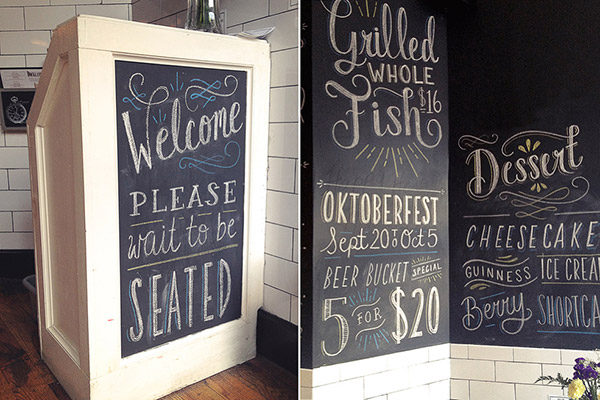 Welcome
PLEASE
wait to be
SEATED
Grilled
WHOLE
Fish $16
OKTOBERFEST
Sept 20 to Oct 5
BEER BUCKET SPECIAL
5 FOR $20
Dessert
CHEESECAKE
GUINNESS ICE CREAM
Berry SHORTCA